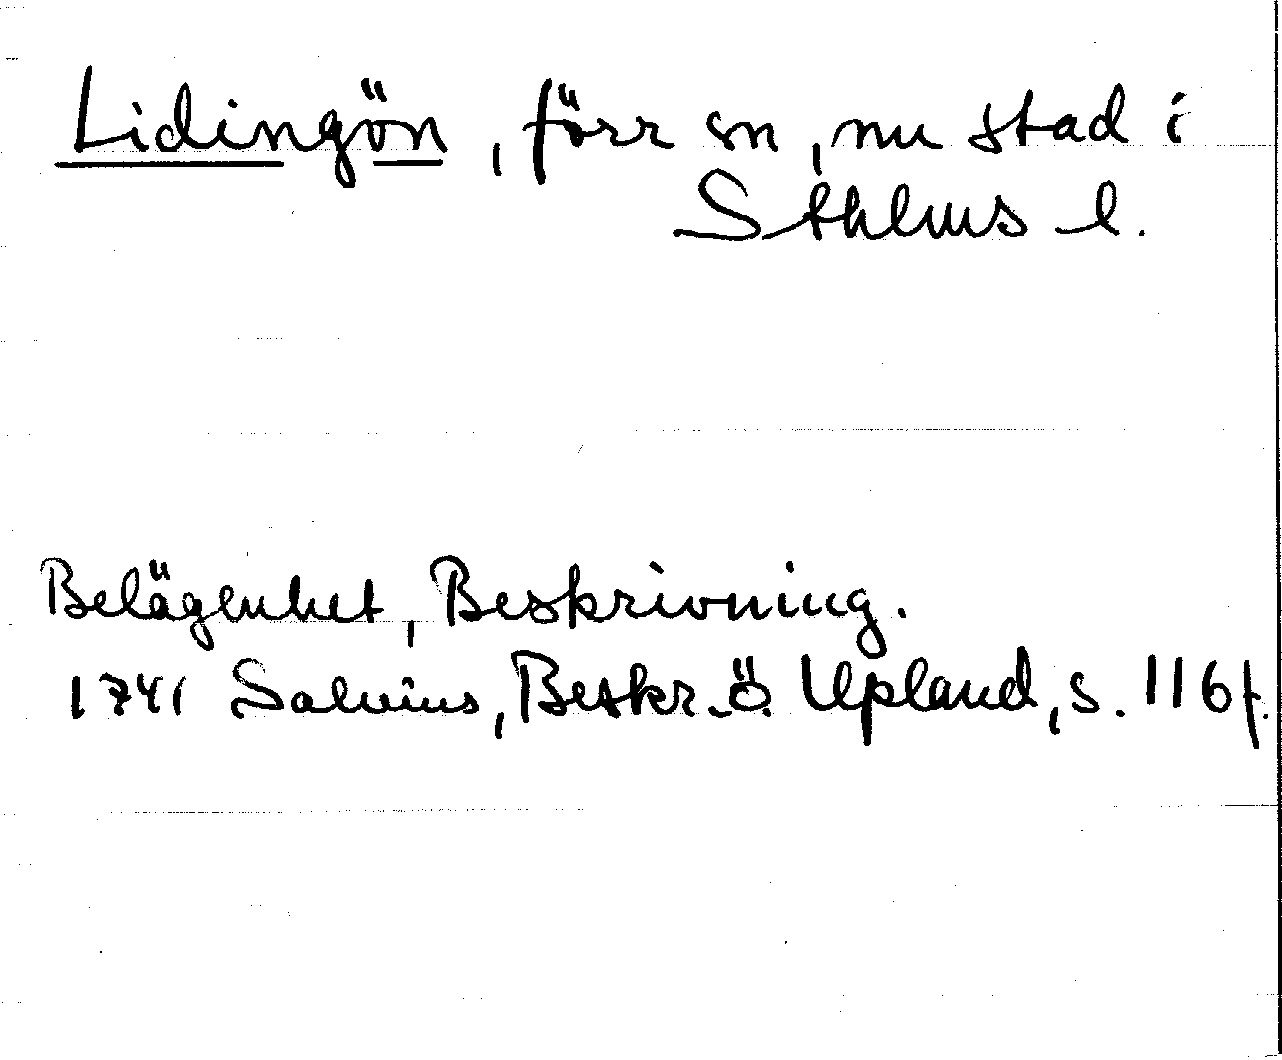 Lidingön, förr sn, nu stad i
Sthlms l.
Belägenhet, Beskrivning.
1741 Salvius, Beskr. ö. Upland, s. 116f.